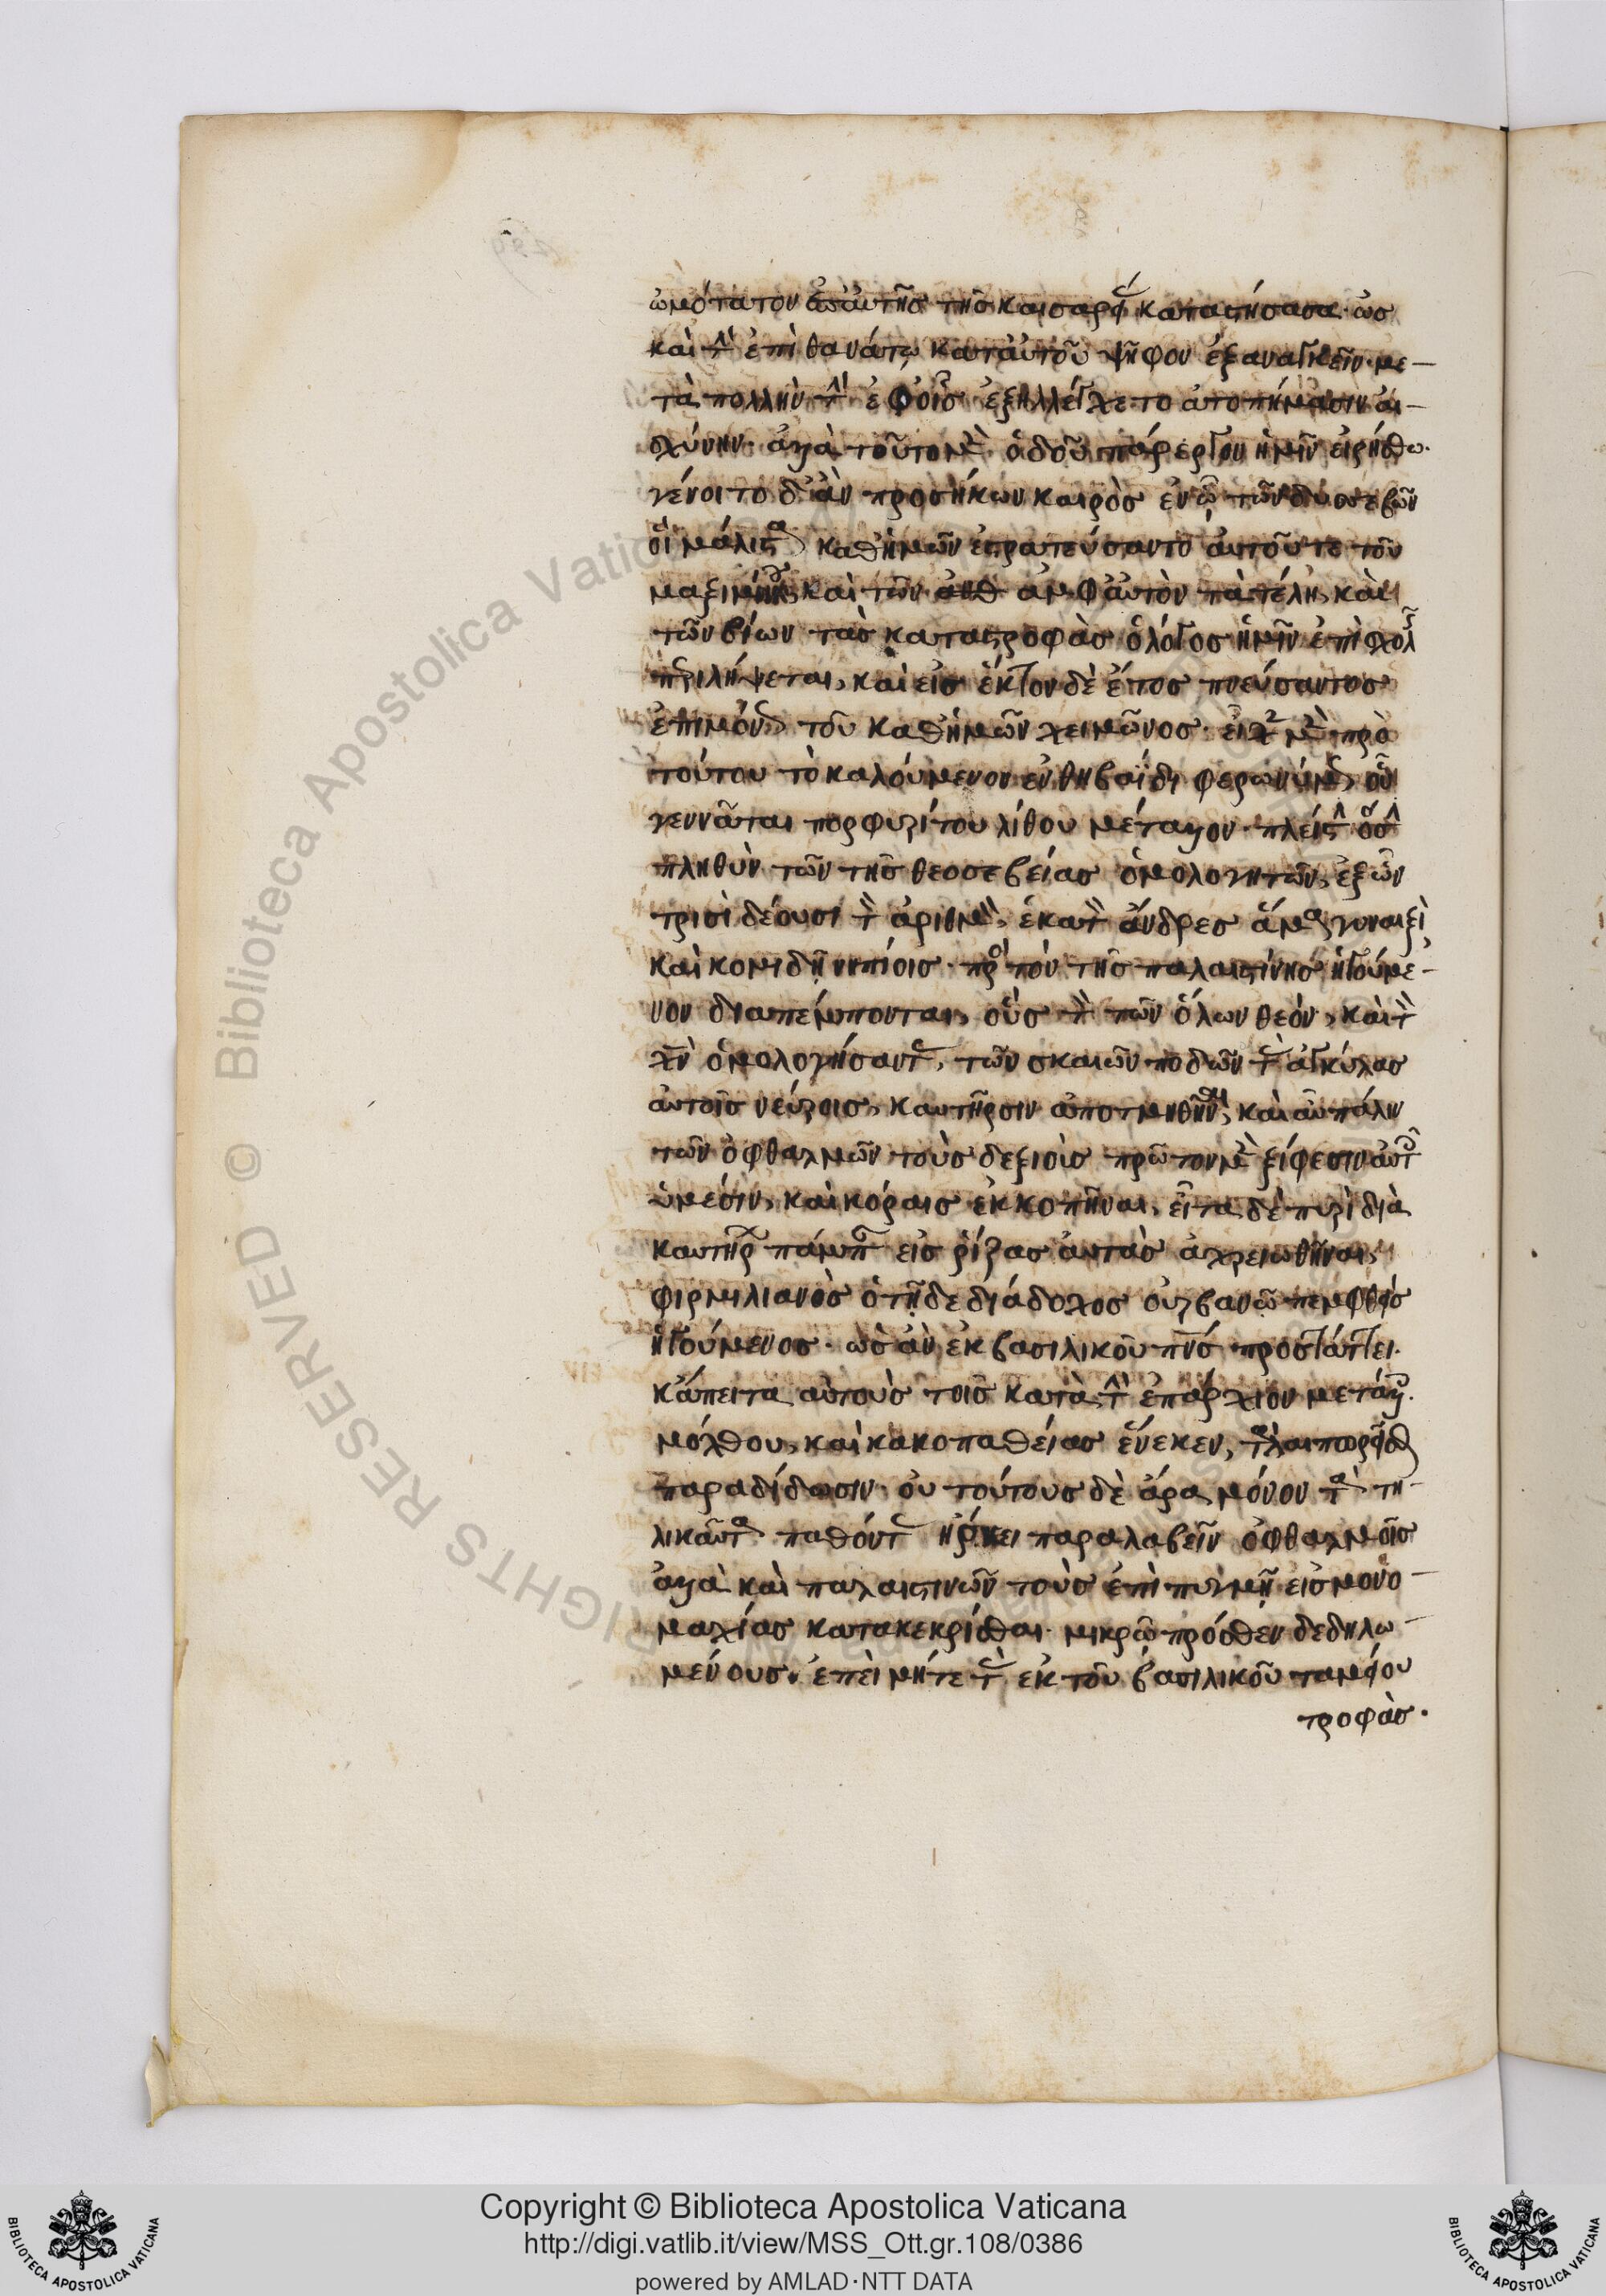 ὠμότατον ἐπ' αὐτῆς τῆς Καισαρεί καταστήσασα· ὡς
καὶ τὴν ἐπὶ θανάτῳ κατ' αὐτοῦ ψῆφον ἐξενεγκεῖν· με-
τὰ πολλὴν τὴν ἐφ' οἷς ἐξηλλέγχετο ἀτοπήμασιν αἰ-
σχύνην· ἀλλὰ τοῦτο μὲν ὁδοῦ πάρεργον ἡμῖν εἰρήσθω·
γένοιτο δ' ἂν προσήκων καιρὸς ἐν ᾧ τῶν δυσσεβῶν
οἳ μάλιστα καθ' ἡμῶν ἐστρατεύσαντο αὐτοῦ τε τοῦ
Μαξιμίνου καὶ τῶν ἀμφ' αὐτὸν τὰ τέλη, καὶ
τῶν βίων τὰς καταστροφὰς ὁ λόγος ἡμῖν ἐπὶ σχολῆς
περιλήψεται, καὶ εἰς ἕκτον δὲ ἔτος πνεύσαντος
ἐπιμόνως τοῦ καθ' ἡμῶν χειμῶνος· εἶχε μὲν πρὸ
τούτου τὸ καλούμενον ἐν Θηβαΐδι φερωνύμως οὗ
γεννᾶται πορφυρίτου λίθου μέταλλον· πλείστην ὅσην
πληθὺν τῶν τῆς θεοσεβείας ὁμολογητῶν, ἐξ ὧν
τρισὶ δέουσι τὸν ἀριθμὸν, ἑκατὸν ἄνδρες ἅμα γυναιξὶ
καὶ κομιδῇ νηπίοις· πρὸς τὸν τῆς Παλαιστίνης ἡγούμε-
νον διαπέμπονται, οὓς τὸν τῶν ὅλων θεόν, καὶ τὸν
χν ὁμολογήσαντας, τῶν σκαιῶν ποδῶν τὰς ἀγκύλας
αὐτοῖς νεύροις, καυτῆρσιν ἀποτμηθῆναι, καὶ αὖ πάλιν
τῶν ὀφθαλμῶν τοὺς δεξιοὺς πρῶτον μὲν ξίφεσιν αὐτοῖς
ὑμέσιν, καὶ κόραις ἐκκοπῆναι, εἶτα δὲ πυρὶ διὰ
καυτήρων πάμπαν εἰς ῥίζας αὐτὰς ἀχρειωθῆναι,
Φιρμιλιανὸς ὁ τῇδε διάδοχος Οὐρβανῷ πεμφθεὶς
ἡγούμενος· ὡς ἂν ἐκ βασιλικοῦ πνς προστάττει·
κἄπειτα αὐτοὺς τοῖς κατὰ τὴν ἐπάρχιον μετάλλοις
μόχθου, καὶ κακοπαθείας ἕνεκεν, ταλαιπωρεῖσθαι
παραδίδωσιν· οὐ τούτους δὲ ἄρα μόνον τὰ τη-
λικαῦτα παθόντας ἤρκει παραλαβεῖν ὀφθαλμοῖς
ἀλλὰ καὶ Παλαιστινῶν τοὺς ἐπὶ πυγμῇ εἰς μονο-
μαχίας κατακεκρίσθαι· μικρῷ πρόσθεν δεδηλω-
μένους, ἐπεὶ μήτε τὰς ἐκ τοῦ βασιλικοῦ ταμείου
τροφὰς·
© Biblioteca Apostolica Vaticana
RIGHTS RESERVED
Copyright © Biblioteca Apostolica Vaticana
http://digi.vatlib.it/view/MSS_Ott.gr.108/0386
powered by AMLAD·NTT DATA
BIBLIOTECA APOSTOLICA VATICANA
BIBLIOTECA APOSTOLICA VATICANA